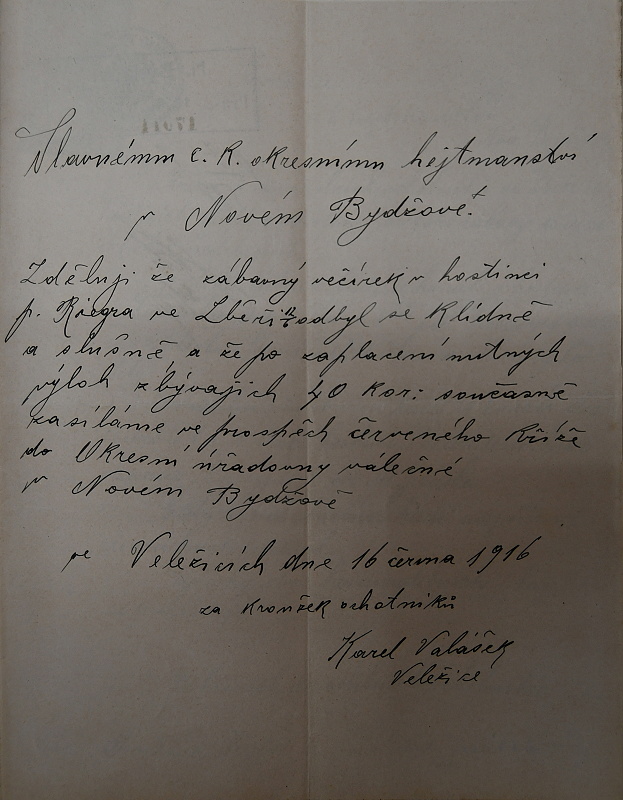 Slavnému c. k. okresnímu hejtmanství
v Novém Bydžově.
Zděluji že zábavný večírek v hostinci
p. Riegra ve Zběři odbyl se klidně
a slušně a že po zaplacení nutných
výloh zbývajích 40 kor: současně
zasíláme ve prospěch červeného kříže
do Okresní úřadovny válečné
v Novém Bydžově
ve Veležicích dne 16 června 1916
za kroužek ochotníků
Karel Valášek
Veležice